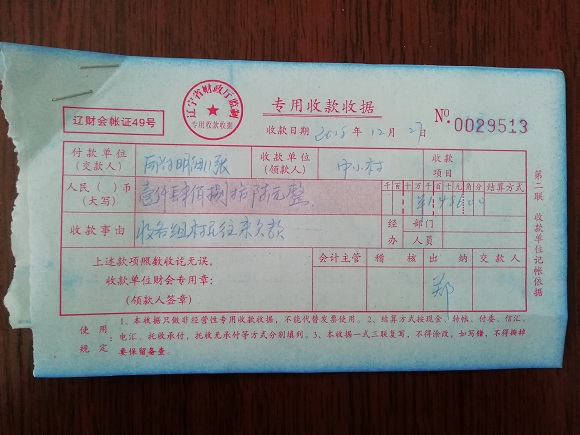 辽财会帐证49号
辽宁省财政厅监制
专用收款收据
专用收款收据
收款日期 2015年12月27日
№ 0029513
付款单位(交款人)
收款单位(领款人) 中小村
收款项目
人民( )币(大写) 壹仟肆佰捌拾陆元整
千百十万千百十元角分 结算方式
¥148600
收款事由 收各组村民往来欠款
经办 部门 人员
上述款项照数收讫无误。
收款单位财会专用章:
(领款人签章)
会计主管 稽核 出纳 交款人
郑
第二联 收款单位记帐依据
使用规定
1、本收据只做非经营性专用收款收据,不能代替发票使用。2、结算方式按现金、转帐、付委、信汇、
电汇、托收承付,托收无承付等方式分别填列。3、本收据一式三联复写,不得涂改,如写错,不得撕掉
要保留备查。